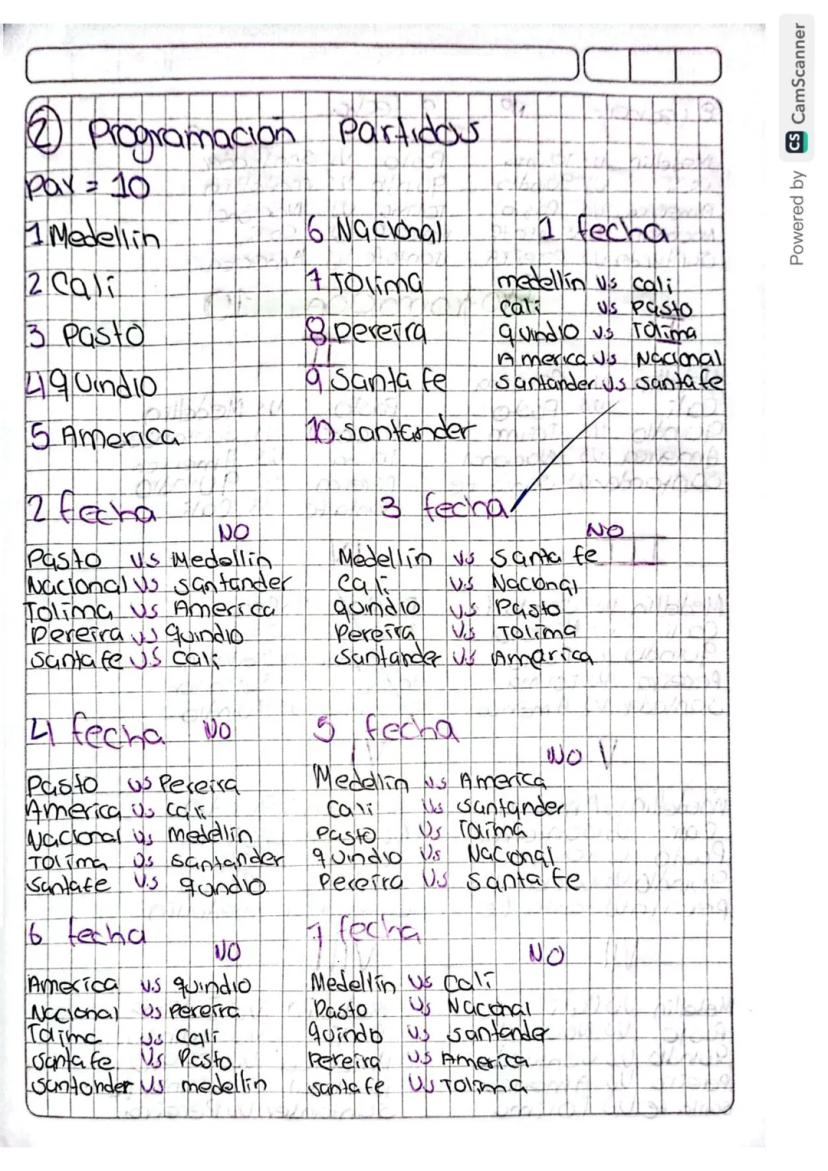 ② Programacion Partidos
Par = 10
1 Medellin
2 Cali
3 Pasto
4 Quindio
5 America
6 Nacional
7 Tolima
8 Pereira
9 Santa fe
10 Santander
1 fecha
medellin vs cali
Cali vs Pasto
quindio vs Tolima
America vs Nacional
Santander vs santafe
2 fecha
NO
Pasto vs Medellin
Nacional vs santander
Tolima vs America
Pereira vs quindio
Santafe vs Cali
3 fecha
NO
Medellin vs Santa fe
Cali vs Nacional
quindio vs Pasto
Pereira vs Tolima
Santander vs America
4 fecha NO
Pasto vs Pereira
America vs Cali
Nacional vs Medellin
Tolima vs Santander
Santafe vs qundio
5 fecha
NO
Medellin vs America
Cali vs Santander
Pasto vs Tolima
quindio vs Nacional
Pereira vs Santa fe
6 fecha
NO
America vs quindio
Nacional vs Pereira
Tolima vs Cali
Santafe vs Pasto
Santander vs medellin
7 fecha
NO
Medellin vs Cali
Pasto vs Nacional
quindo vs santander
Pereira vs America
santafe vs Tolima
Powered by CS CamScanner